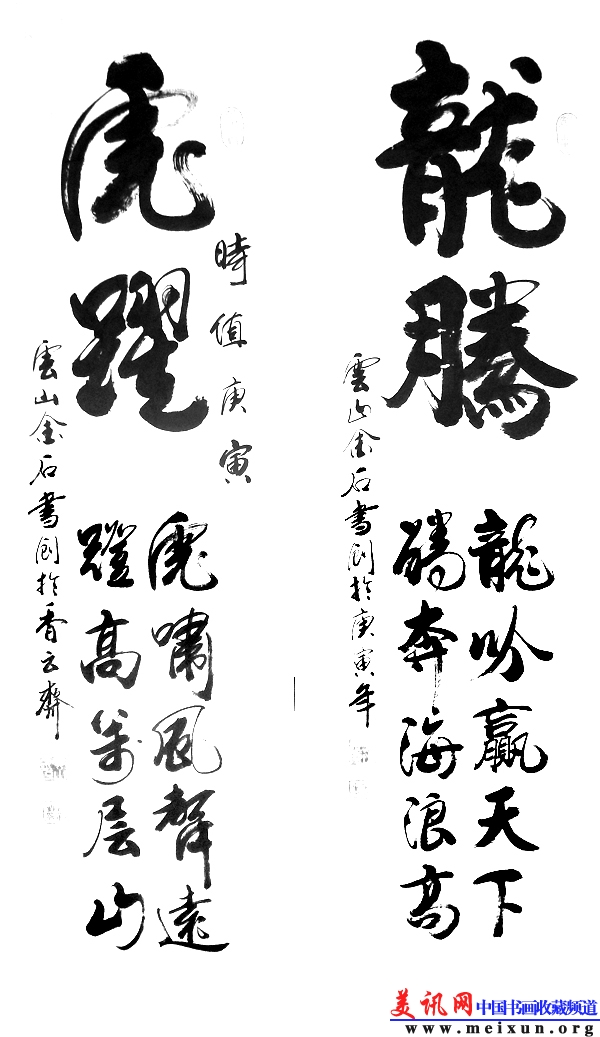 龍騰
龍吟贏天下
騰奔海浪高
雲山金石書创於庚寅年
虎躍
時值庚寅
虎嘯風聲遠
躍高萬层山
雲山金石書创於香云齋
美讯网 中国书画收藏频道
www.meixun.org